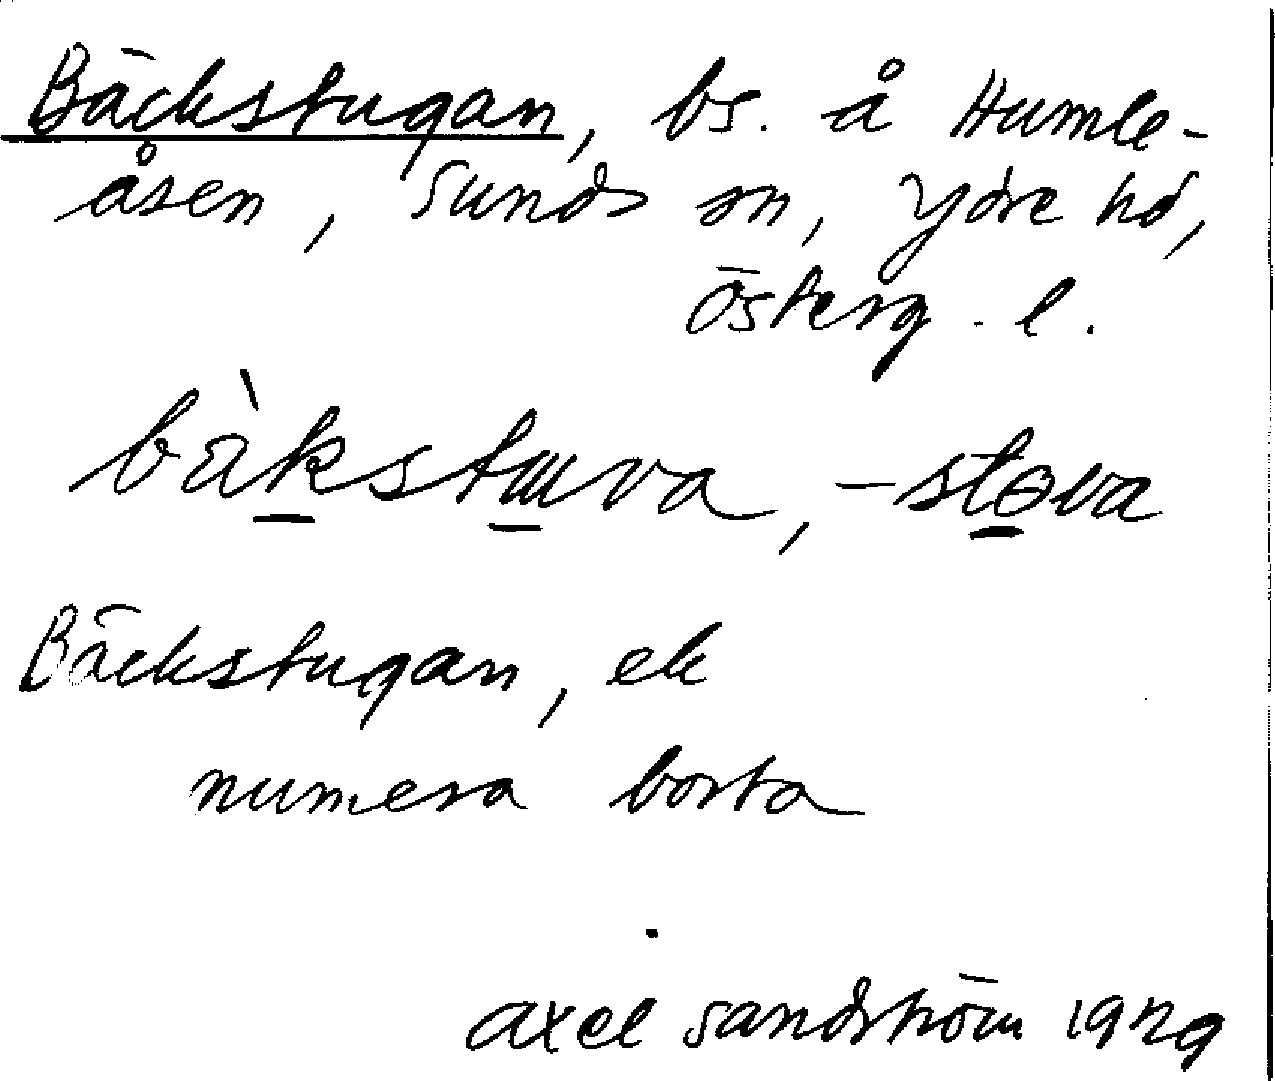 Bäckstugan, bs. å Humle-
åsen, Sunds sn, Ydre hd,
Österg. l.
bàkstuva, -stɵva
Bäckstugan, ek
numera borta
Axel Sandström 1929